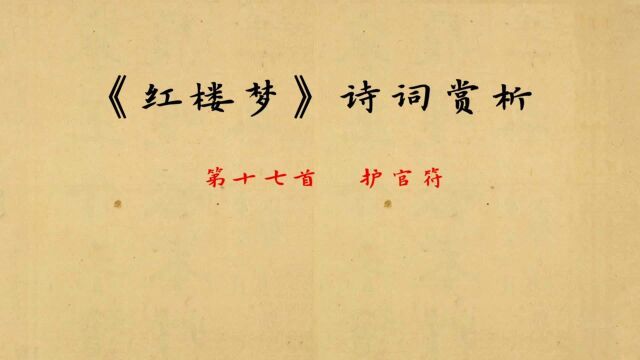 《红楼梦》诗词赏析
第十七首 护官符